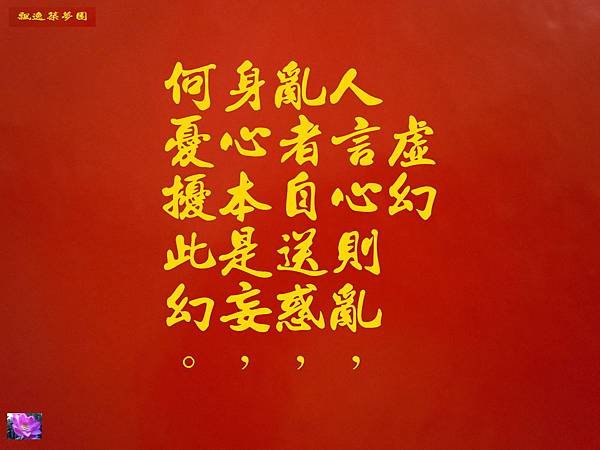 飄逸築夢園
虛幻
人言心則亂，
亂者自送惑，
身心本是妄，
何憂擾此幻。